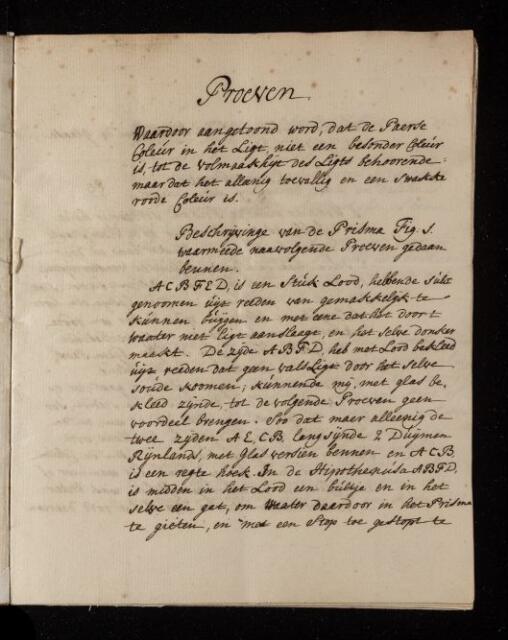 Proeven
Waardoor aangetoond word, dat de Paerse
Coleur in het Ligt, niet een besonder Coleur
is, tot de volmaakhijt des Ligts behoorende.
maar dat het allenig toevallig en een swakke
roode Coleur is.
Beschrijvinge van de Prisma Fig. 1.
waarmeede naavolgende Proeven gedaan
bennen.
ACBFED, is een Stuk Lood, hebbende sulx
genoomen uijt reeden van gemakkelijk te
kunnen buijgen en met eene dat het door t
waater niet ligt aanslaagt, en het selve donker
maakt. De zijde ABFD, heb met Lood bekleed
uijt reeden dat geen vals Ligt door het selve
soude komen; kunnende mij, met glas be,
kleed zijnde, tot de volgende Proeven geen
voordeel brengen. Soo dat maer alleenig de
twee zijden AECB, lang sijnde 2 Duijmen
Rijnlands, met Glas versien bennen en ACB
is een regte hoek. In de Hipothenusa ABFD,
is midden in het Lood een buisje en in het
selve een gat, om Waater daardoor in het Prisma
te gieten, en met een Stop toe gestopt te